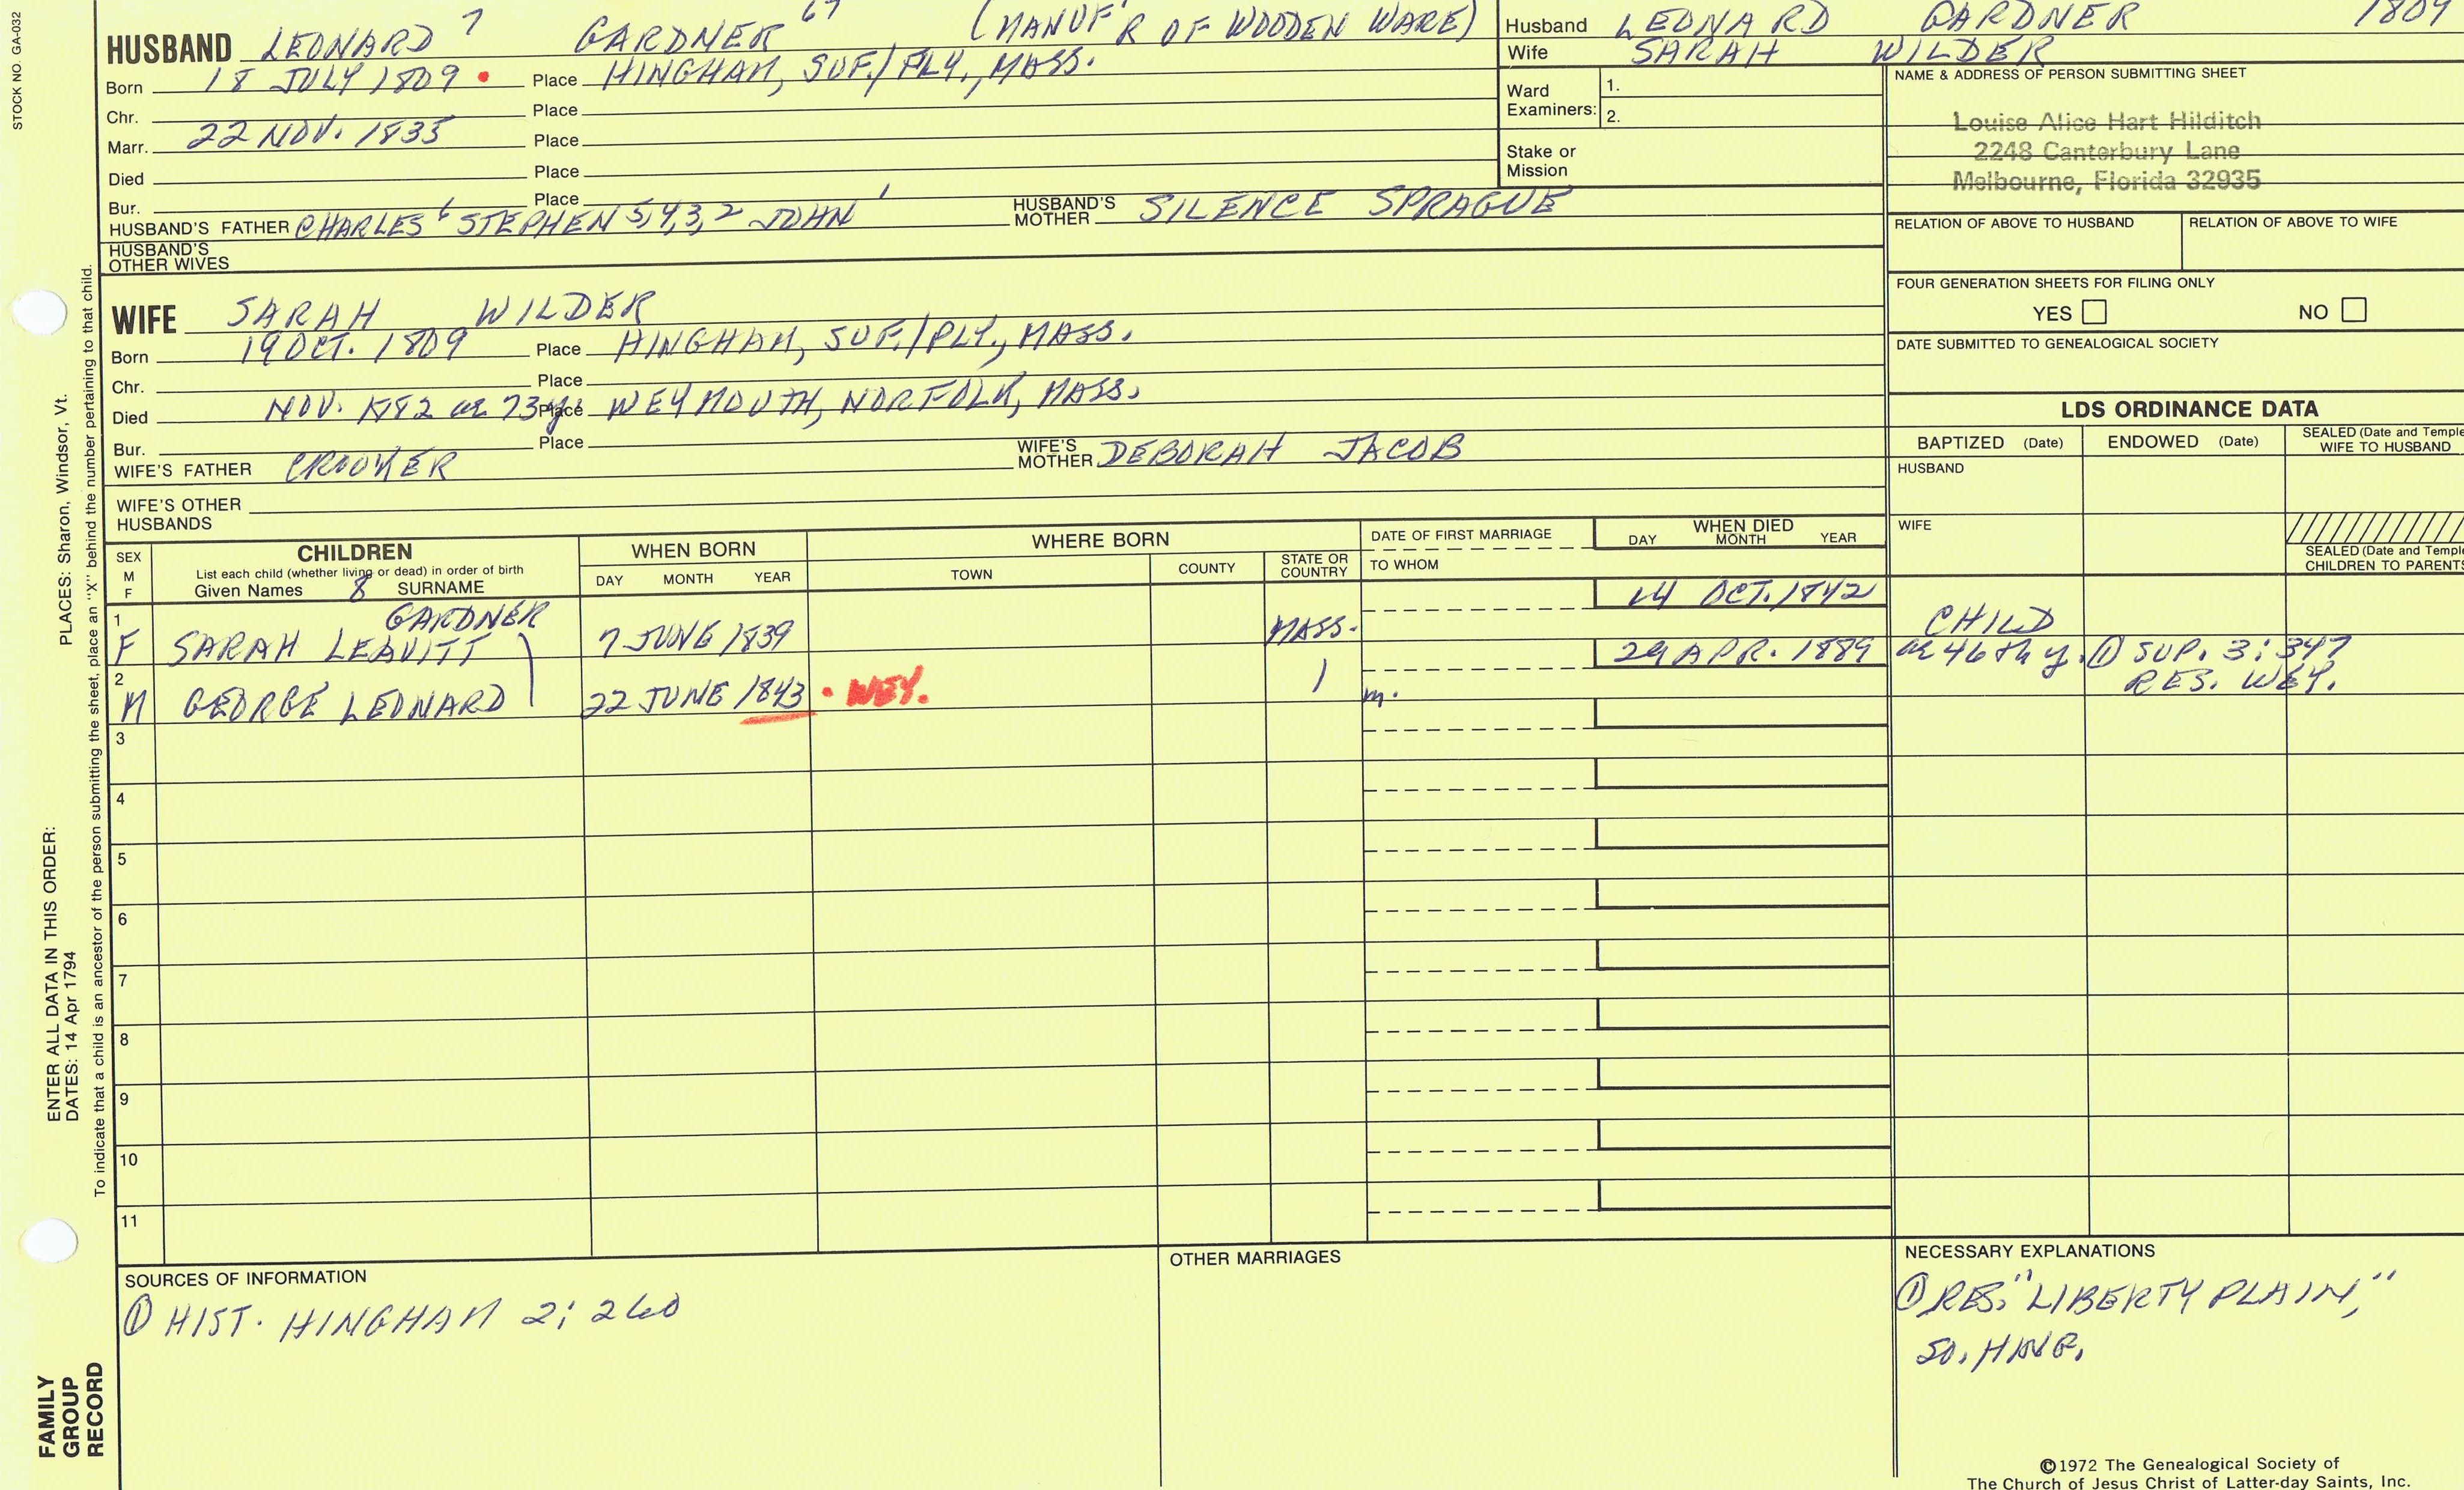 STOCK NO. GA-032
HUSBAND LEONARD 7 GARDNER 67 (MANUF'R OF WOODEN WARE)
Born 18 JULY 1809 • Place HINGHAM, SUF./PLY., MASS.
Chr. Place
Marr. 22 NOV. 1835 Place
Died Place
Bur. Place
HUSBAND'S FATHER CHARLES 6 STEPHEN 5,4,3,2 JOHN 1 HUSBAND'S MOTHER SILENCE SPRAGUE
HUSBAND'S OTHER WIVES
Husband LEONARD GARDNER 1809
Wife SARAH WILDER
Ward Examiners: 1.
2.
Stake or Mission
NAME & ADDRESS OF PERSON SUBMITTING SHEET
Louise Alice Hart Hilditch
2248 Canterbury Lane
Melbourne, Florida 32935
RELATION OF ABOVE TO HUSBAND RELATION OF ABOVE TO WIFE
FOUR GENERATION SHEETS FOR FILING ONLY
YES NO
DATE SUBMITTED TO GENEALOGICAL SOCIETY
WIFE SARAH WILDER
Born 19 OCT. 1809 Place HINGHAM, SUF./PLY., MASS.
Chr. Place
Died NOV. 1882 ae 73 y. Place WEYMOUTH, NORFOLK, MASS.
Bur. Place
WIFE'S FATHER CROOKER WIFE'S MOTHER DEBORAH JACOB
WIFE'S OTHER HUSBANDS
LDS ORDINANCE DATA
BAPTIZED (Date) ENDOWED (Date) SEALED (Date and Temple
WIFE TO HUSBAND
HUSBAND
WIFE
SEALED (Date and Temple
CHILDREN TO PARENTS
SEX
M
F
CHILDREN
List each child (whether living or dead) in order of birth
Given Names 8 SURNAME
WHEN BORN
DAY MONTH YEAR
WHERE BORN
TOWN COUNTY STATE OR COUNTRY
DATE OF FIRST MARRIAGE
TO WHOM
WHEN DIED
DAY MONTH YEAR
1 GARDNER 14 OCT. 1842
F SARAH LEAVITT 7 JUNE 1839 MASS. CHILD
2 29 APR. 1889 ae 46th y. ① SUP. 3:347
M GEORGE LEONARD 22 JUNE 1843 • WEY. m. RES. WEY.
3
4
5
6
7
8
9
10
11
SOURCES OF INFORMATION
① HIST. HINGHAM 2:260
OTHER MARRIAGES
NECESSARY EXPLANATIONS
① RES. "LIBERTY PLAIN,"
SO. HING.
PLACES: Sharon, Windsor, Vt.
To indicate that a child is an ancestor of the person submitting the sheet, place an "X" behind the number pertaining to that child.
ENTER ALL DATA IN THIS ORDER:
DATES: 14 Apr 1794
FAMILY
GROUP
RECORD
©1972 The Genealogical Society of
The Church of Jesus Christ of Latter-day Saints, Inc.